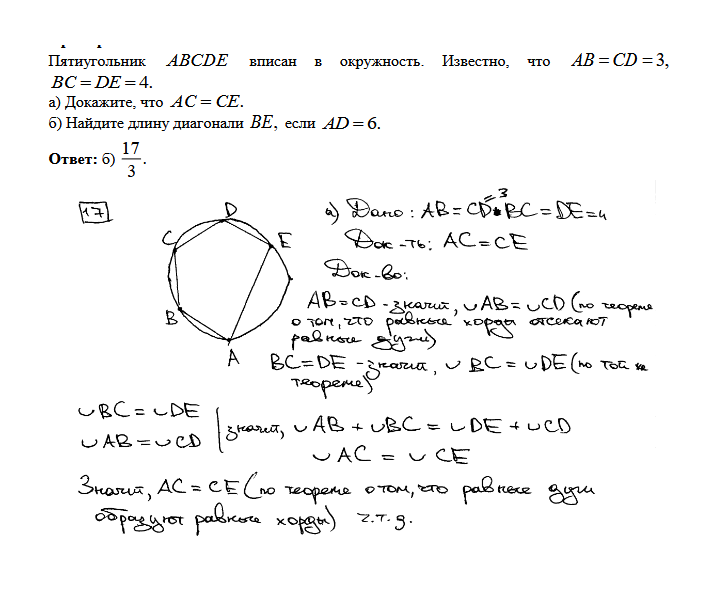 Пятиугольник ABCDE вписан в окружность. Известно, что AB = CD = 3,
BC = DE = 4.
а) Докажите, что AC = CE.
б) Найдите длину диагонали BE, если AD = 6.
Ответ: б) 17/3.
17
D
C
E
B
A
а) Дано: AB = CD = 3 BC = DE = 4
Док-ть: AC = CE
Док-во:
AB = CD - значит, ∪AB = ∪CD (по теореме
о том, что равные хорды отсекают
равные дуги)
BC = DE - значит, ∪BC = ∪DE (по той же
теореме)
∪BC = ∪DE
∪AB = ∪CD
значит, ∪AB + ∪BC = ∪DE + ∪CD
∪AC = ∪CE
Значит, AC = CE (по теореме о том, что равные дуги
образуют равные хорды) ч.т.д.